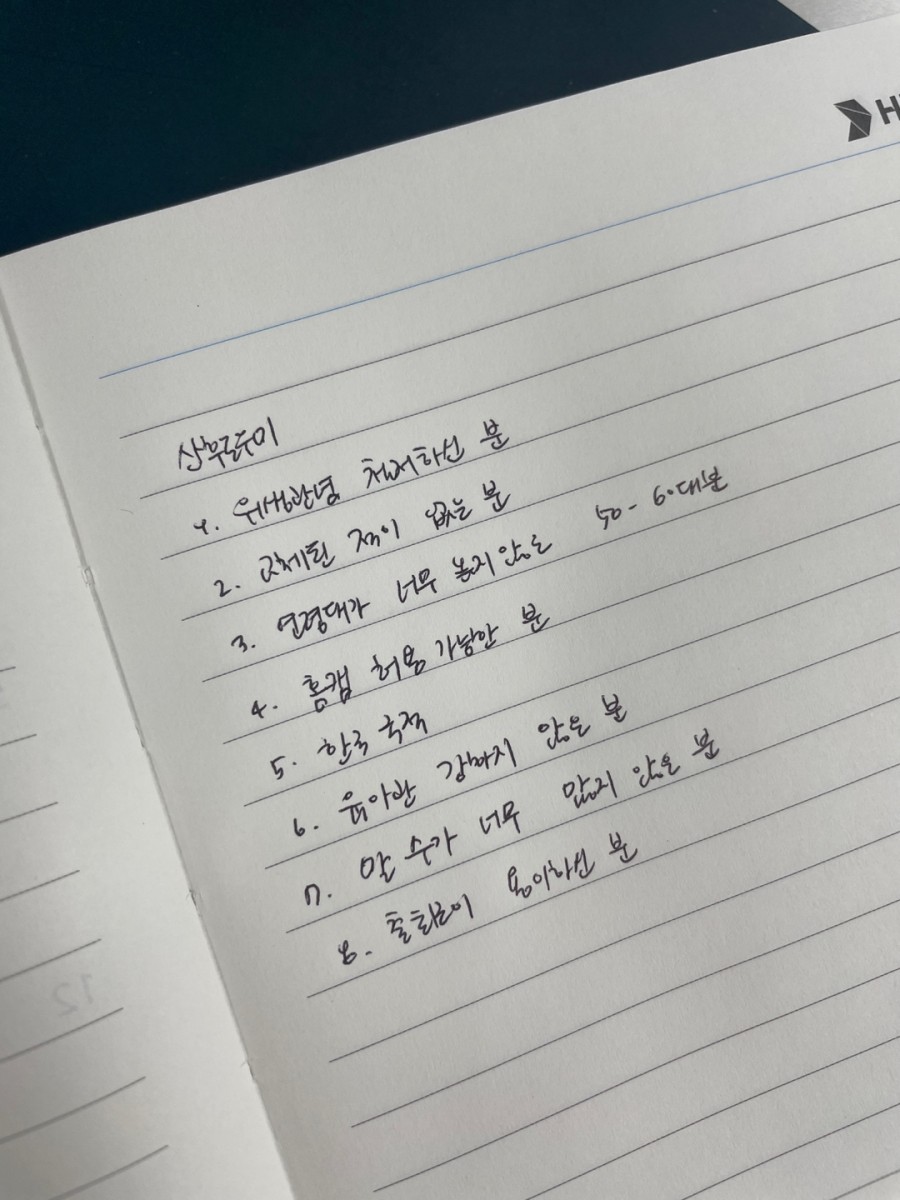 산후도우미
1. 위생관념 철저하신 분
2. 교체된 적이 없는 분
3. 연령대가 너무 높지 않은 50-60대분
4. 홈캠 허용 가능한 분
5. 한국 국적
6. 육아관 강하지 않은 분
7. 말 수가 너무 많지 않은 분
8. 출퇴근이 용이하신 분
12